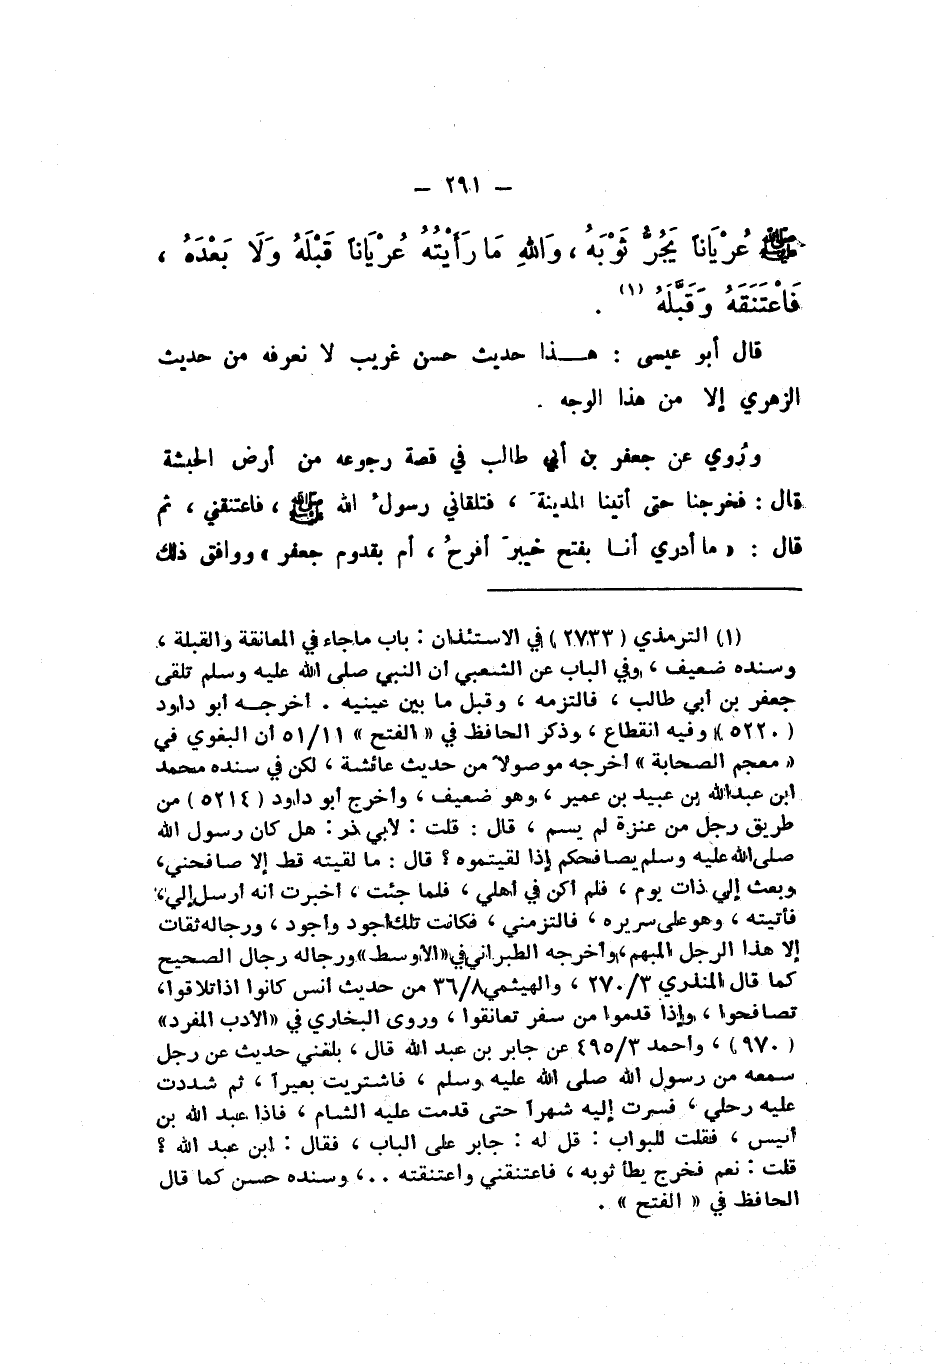 — ٢٩١ —
ﷺ عُرْيَاناً يَجُرُّ ثَوْبَهُ ، وَاللهِ مَا رَأَيْتُهُ عُرْيَاناً قَبْلَهُ وَلَا بَعْدَهُ ،
فَاعْتَنَقَهُ وَقَبَّلَهُ (١) .
قال أبو عيسى : هــذا حديث حسن غريب لا نعرفه من حديث
الزهري إلا من هذا الوجه .
ورُوي عن جعفر بن أبي طالب في قصة رجوعه من أرض الحبشة
قال : فخرجنا حتى أتينا المدينةَ ، فتلقاني رسولُ الله ﷺ ، فاعتنقني ، ثم
قال : « ما أدري أنــا بفتح خيبرَ أفرحُ ، أم بقدوم جعفر » ووافق ذلك
(١) الترمذي ( ٢٧٣٣ ) في الاستئذان : باب ماجاء في المعانقة والقبلة ،
وسنده ضعيف ، وفي الباب عن الشعبي أن النبي صلى الله عليه وسلم تلقى
جعفر بن أبي طالب ، فالتزمه ، وقبل ما بين عينيه . أخرجــه أبو داود
( ٥٢٢٠ ) وفيه انقطاع ، وذكر الحافظ في « الفتح » ٥١/١١ أن البغوي في
« معجم الصحابة » أخرجه موصولاً من حديث عائشة ، لكن في سنده محمد
ابن عبدالله بن عبيد بن عمير ، وهو ضعيف ، وأخرج أبو داود ( ٥٢١٤ ) من
طريق رجل من عنزة لم يسم ، قال : قلت : لأبي ذر : هل كان رسول الله
صلى الله عليه وسلم يصافحكم إذا لقيتموه ؟ قال : ما لقيته قط إلا صافحني ،
وبعث إلي ذات يوم ، فلم أكن في أهلي ، فلما جئت ، أخبرت أنه أرسل إلي ،
فأتيته ، وهو على سريره ، فالتزمني ، فكانت تلك أجود وأجود ، ورجاله ثقات
إلا هذا الرجل المبهم ، وأخرجه الطبراني في «الأوسط» ورجاله رجال الصحيح
كما قال المنذري ٢٧٠/٣ ، والهيثمي ٣٦/٨ من حديث أنس كانوا اذا تلاقوا ،
تصافحوا ، وإذا قدموا من سفر تعانقوا ، وروى البخاري في «الأدب المفرد»
( ٩٧٠ ) ، وأحمد ٤٩٥/٣ عن جابر بن عبد الله قال ، بلغني حديث عن رجل
سمعه من رسول الله صلى الله عليه وسلم ، فاشتريت بعيراً ، ثم شددت
عليه رحلي ، فسرت إليه شهراً حتى قدمت عليه الشام ، فاذا عبد الله بن
أنيس ، فقلت للبواب : قل له : جابر على الباب ، فقال : ابن عبد الله ؟
قلت : نعم فخرج يطأ ثوبه ، فاعتنقني واعتنقته ..، وسنده حسن كما قال
الحافظ في « الفتح » .